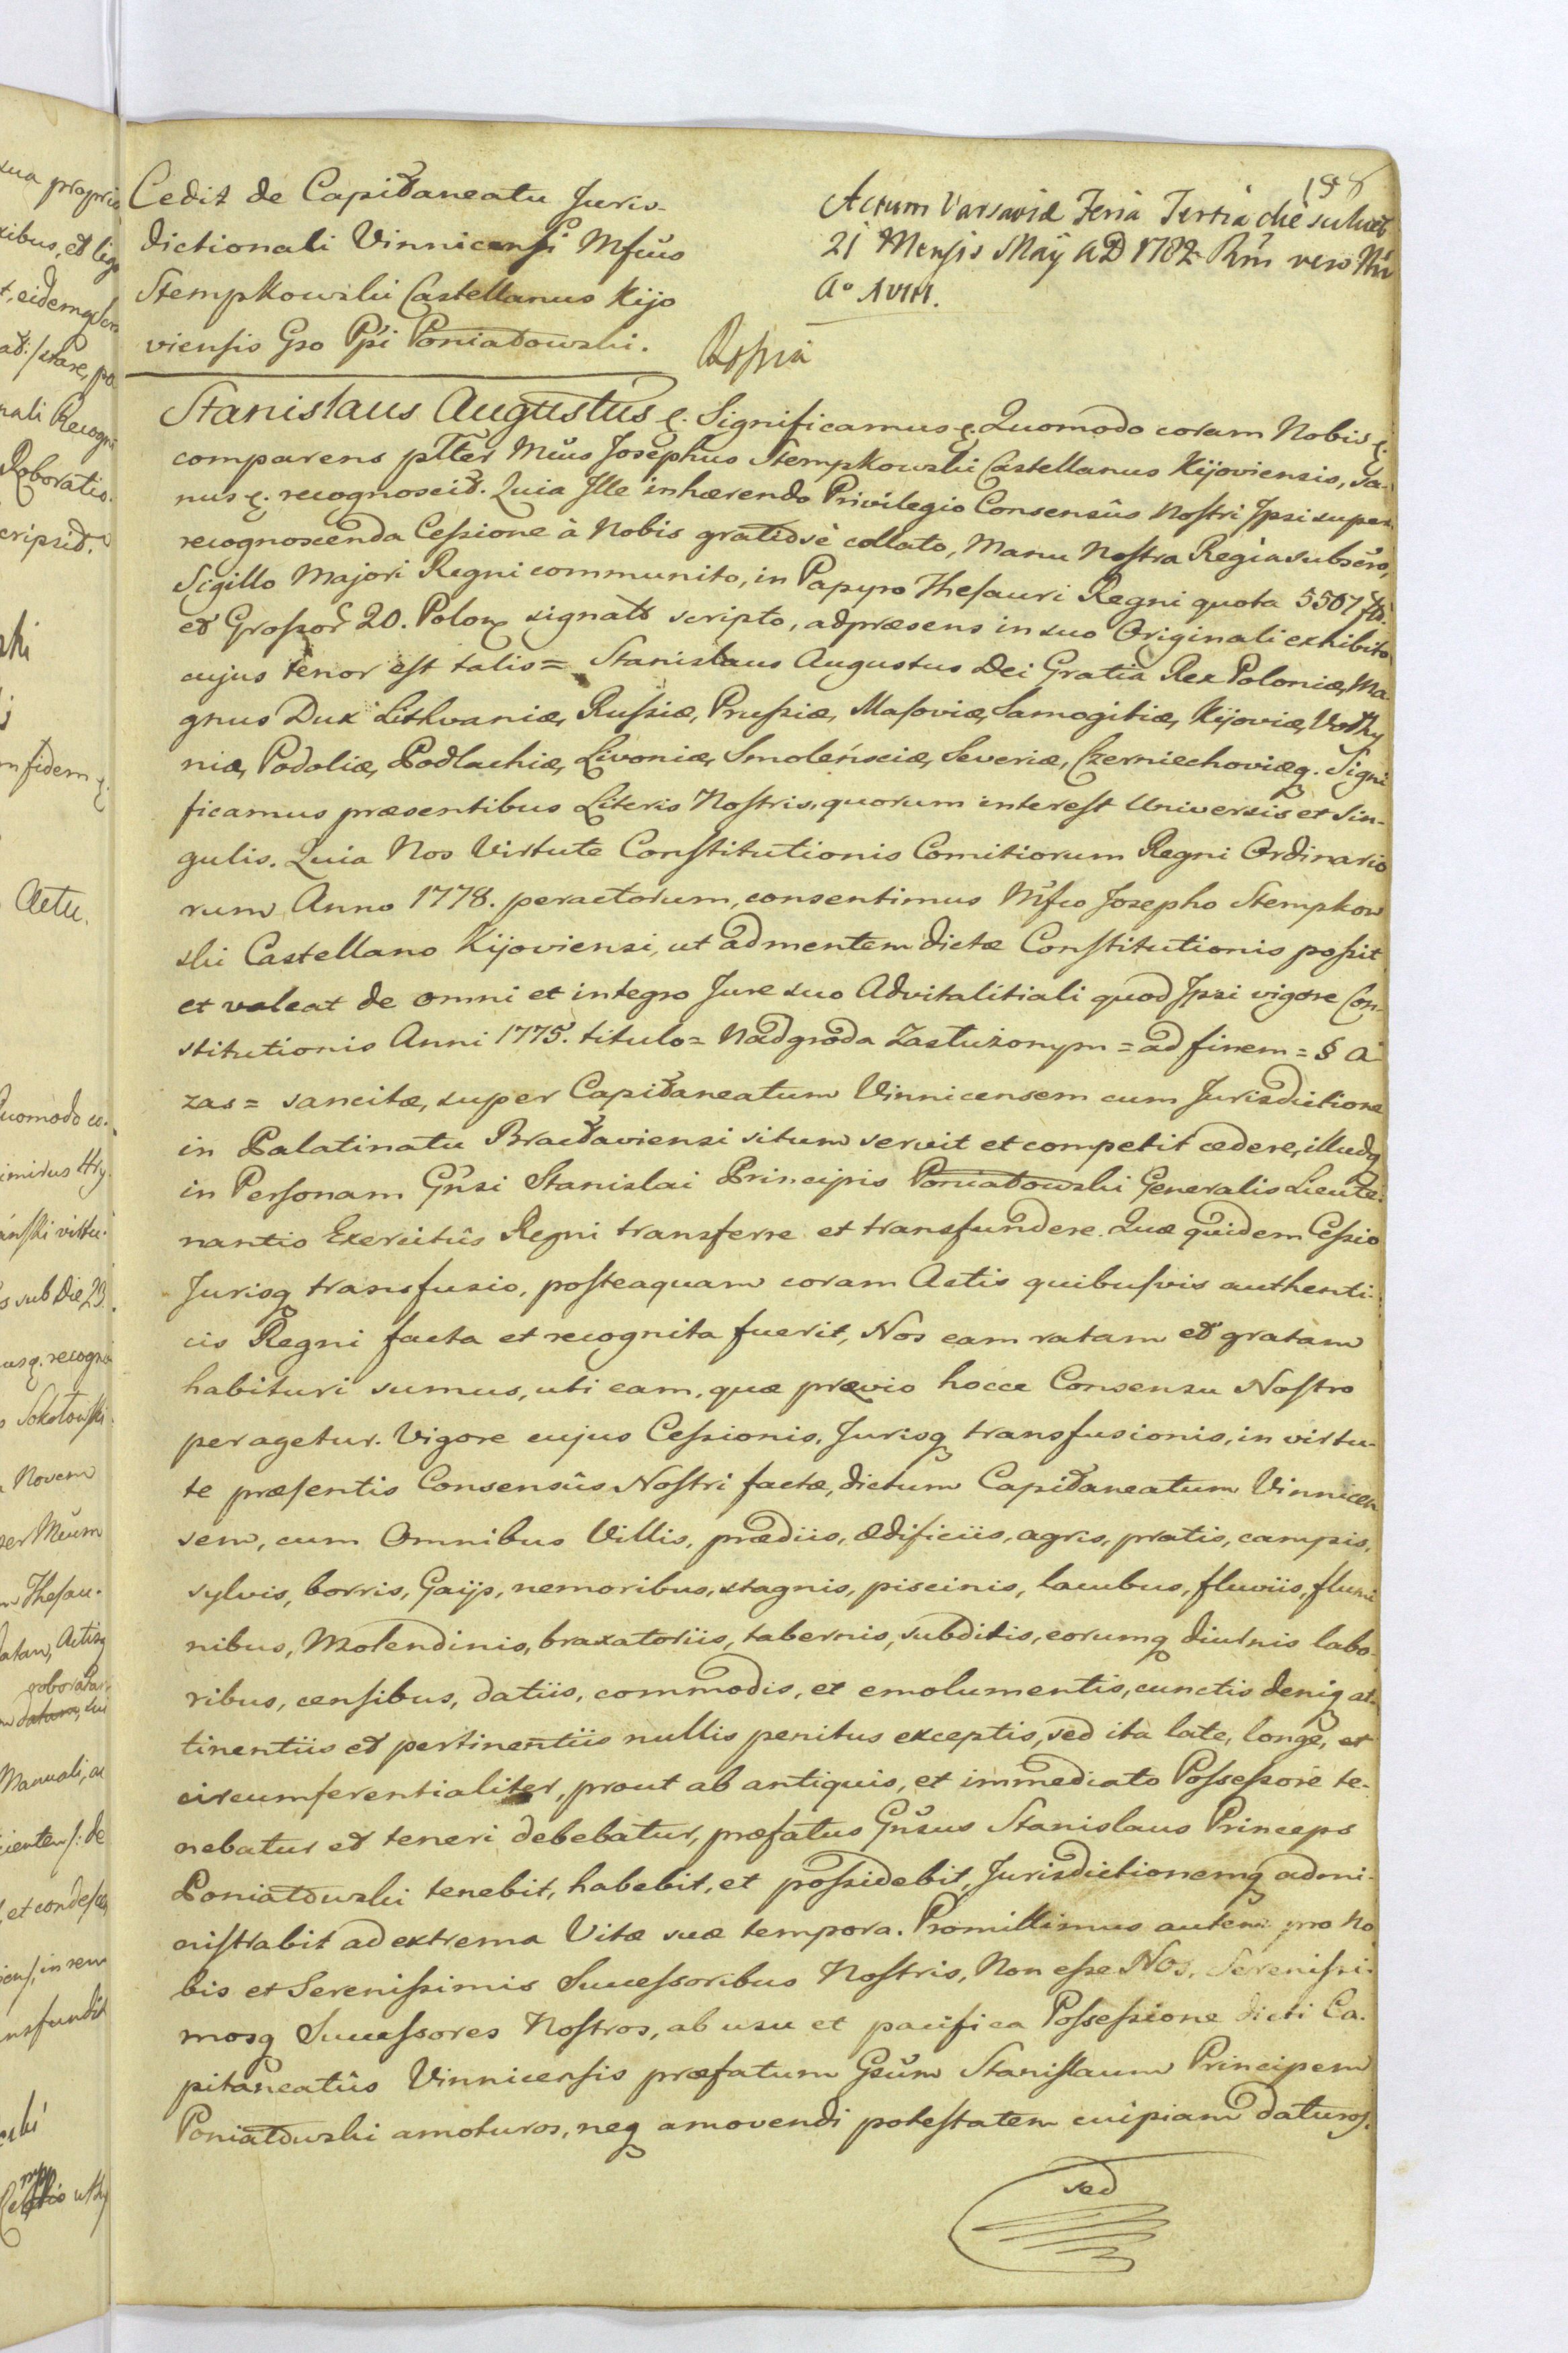 198
Cedit de Capitaneatu Juris-
dictionali Vinnicensi Mfcus
Stempkowski Castellanus Kijo
viensis Gso Ppi Poniatowski.
Actum Varsaviæ Feria Tertia die
21 Mensis Maÿ AD 1782 Rni vero Nri
Ao XVIII.
Stanislaus Augustus &. Significamus &. Quomodo coram Nobis &.
comparens plter Mcus Josephus Stempkowski Castellanus Kijoviensis, Sa-
nus &. recognoscit. Quia Ille inhærendo Privilegio Consensûs Nostri Ipsi super
recognoscenda Cessione à Nobis gratiosè collato, Manu Nostra Regia subscro,
Sigillo Majori Regni communito, in Papyro Thesauri Regni quota 5567 fl.
et Grossor 20. Polon signato scripto, adpræsens in suo Originali exhibito
cujus tenor est talis = Stanislaus Augustus Dei Gratia Rex Poloniæ, Ma-
gnus Dux Lithvaniæ, Russiæ, Prussiæ, Masoviæ, Samogitiæ, Kijoviæ, Volhy
niæ, Podoliæ, Podlachiæ, Livoniæ, Smolensciæ, Severiæ, Czerniechoviæq. Signi
ficamus præsentibus Literis Nostris, quorum interest Universis et Sin-
gulis. Quia Nos Virtute Constitutionis Comitiorum Regni Ordinario
rum Anno 1778. peractorum, consentimus Mfco Josepho Stempkow
ski Castellano Kijoviensi, ut ad mentem dictæ Constitutionis possit
et valeat de omni et integro Jure suo Advitalitiali quod Ipsi vigore Con-
stitutionis Anni 1775. titulo = Nadgroda Zasłużonym = ad finem = § A
zas = sancitæ, super Capitaneatum Vinnicensem cum Jurisdictione
in Palatinatu Bracłaviensi situm servit et competit cedere, illudq
in Personam Gnsi Stanislai Principis Poniatowski Generalis Lieute-
nantis Exercitûs Regni transferre et transfundere. Quæ quidem Cessio
Jurisq transfusio, posteaquam coram Actis quibusvis authenti-
cis Regni facta et recognita fuerit, Nos eam ratam et gratam
habituri sumus, uti eam, quæ prævio hocce Consensu Nostro
peragetur. Vigore cujus Cessionis, Jurisq transfusionis, in virtu-
te præsentis Consensûs Nostri factæ, dictum Capitaneatum Vinnicen
sem, cum Omnibus Villis, prædiis, ædificiis, agris, pratis, campis,
sylvis, borris, Gaijs, nemoribus, stagnis, piscinis, lacubus, fluviis, flumi
nibus, Molendinis, braxatoriis, tabernis, subditis, eorumq diutnis labo-
ribus, censibus, datiis, commodis, et emolumentis, cunctis deniq at-
tinentiis et pertinentiis nullis penitus exceptis, sed ita late, longe, et
circumferentialiter, prout ab antiquis, et immediato Possessore te-
nebatur et teneri debebatur, præfatus Gnsus Stanislaus Princeps
Poniatowski tenebit, habebit, et possidebit, Jurisdictionemq admi-
nistrabit ad extrema Vitæ suæ tempora. Promittimus autem pro No
bis et Serenissimis Successoribus Nostris, Non esse Nos, Serenissi-
mosq Successores Nostros, ab usu et pacifica Possessione dicti Ca-
pitaneatûs Vinnicensis præfatum Gsum Stanislaum Principem
Poniatowski amoturos, neq amovendi potestatem cuipiam daturos,
sed